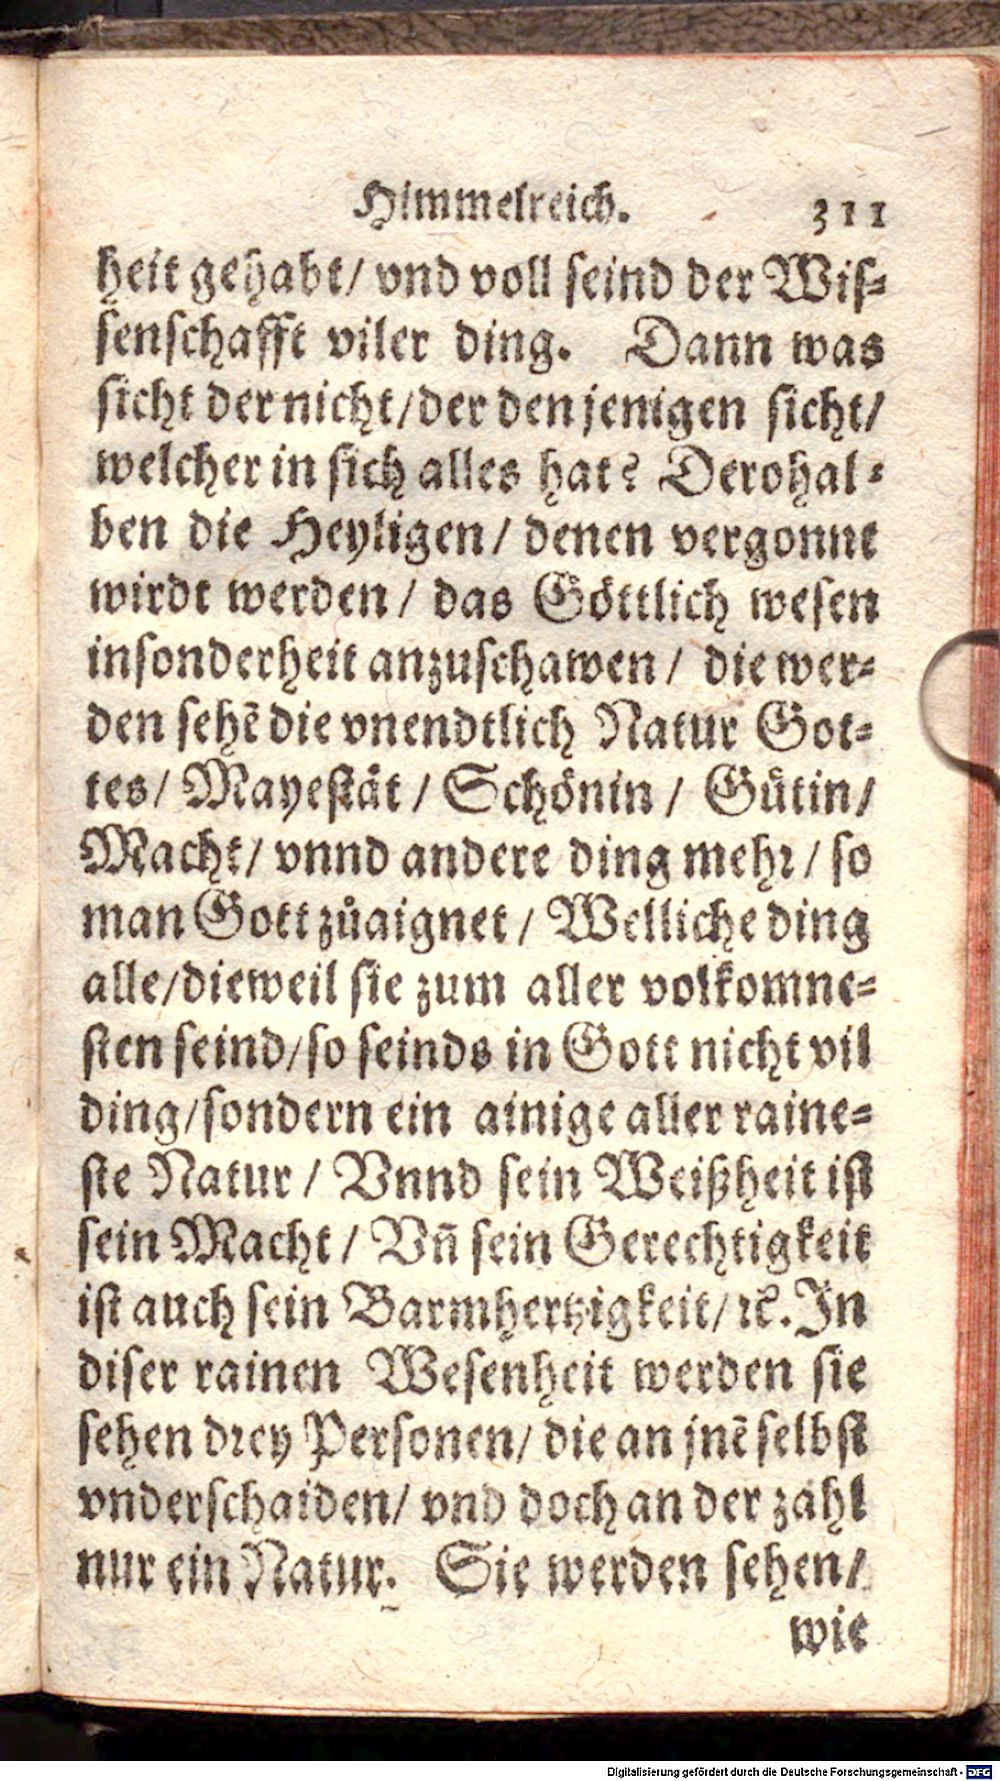 Himmelreich. 311
heit gehabt/ vnd voll seind der Wis-
senschafft viler ding. Dann was
sicht der nicht/der den jenigen sicht/
welcher in sich alles hat? Derohal-
ben die Heyligen/ denen vergonnt
wirdt werden/ das Göttlich wesen
insonderheit anzuschawen/ die wer-
den sehē die vnendtlich Natur Got-
tes/ Mayestät/ Schönin/ Gütin/
Macht/ vnnd andere ding mehr/ so
man Gott zůaignet/ Welliche ding
alle/dieweil sie zum aller volkomne-
sten seind/so seinds in Gott nicht vil
ding/sondern ein ainige aller raine-
ste Natur/ Vnnd sein Weißheit ist
sein Macht/ Vn̄ sein Gerechtigkeit
ist auch sein Barmhertzigkeit/ ꝛc. In
diser rainen Wesenheit werden sie
sehen drey Personen/ die an jnē selbst
vnderschaiden/ vnd doch an der zahl
nur ein Natur. Sie werden sehen/
wie
Digitalisierung gefördert durch die Deutsche Forschungsgemeinschaft - DFG